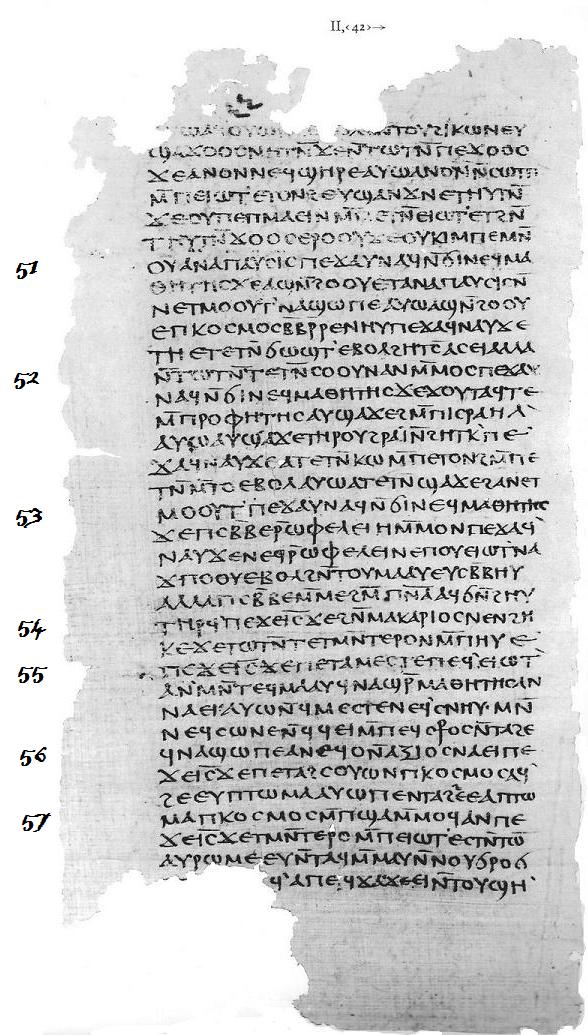 II,<42>→
ϣⲁⲟⲩⲱⲛ ⲃⲟⲗϩⲛⲧⲟⲩϩⲓⲕⲱⲛⲉⲩ
ϣⲁϫⲟⲟⲥⲛⲏⲧⲛ̄ϫⲉⲛ̄ⲧⲱⲧⲛ̄ⲡⲉϫⲟⲟⲥ
ϫⲉⲁⲛⲟⲛⲛⲉϥϣⲏⲣⲉⲁⲩⲱⲁⲛⲟⲛⲛ̄ⲥⲱⲧⲡ
ⲙ̄ⲡⲉⲓⲱⲧ⳿ⲉⲧⲟⲛϩⲉⲩϣⲁⲛϫⲛⲉⲧⲏⲩⲧⲛ̄
ϫⲉⲟⲩⲡⲉⲡⲙⲁⲉⲓⲛⲙ̄ⲡⲉⲧⲛ̄ⲉⲓⲱⲧ⳿ⲉⲧϩⲛ̄
ⲧⲏⲩⲧⲛ̄ϫⲟⲟⲥⲉⲣⲟⲟⲩϫⲉⲟⲩⲕⲓⲙⲡⲉⲙⲛ̄
51 ⲟⲩⲁⲛⲁⲡⲁⲩⲥⲓⲥⲡⲉϫⲁⲩⲛⲁϥⲛ̄ϭⲓⲛⲉϥⲙⲁ
ⲑⲏⲧⲏⲥϫⲉⲁϣⲛ̄ϩⲟⲟⲩⲉⲧⲁⲛⲁⲡⲁⲩⲥⲓⲥⲛ̄
ⲛⲉⲧⲙⲟⲟⲩⲧ⳿ⲛⲁϣⲱⲡⲉⲁⲩⲱⲁϣⲛ̄ϩⲟⲟⲩ
ⲉⲡⲕⲟⲥⲙⲟⲥⲃ̄ⲃⲣ̄ⲣⲉⲛⲏⲩⲡⲉϫⲁϥⲛⲁⲩϫⲉ
ⲧⲏⲉⲧⲉⲧⲛ̄ϭⲱϣⲧ⳿ⲉⲃⲟⲗϩⲏⲧⲥ̄ⲁⲥⲉⲓⲁⲗⲗⲁ
52 ⲛ̄ⲧⲱⲧⲛ̄ⲧⲉⲧⲛ̄ⲥⲟⲟⲩⲛⲁⲛⲙ̄ⲙⲟⲥⲡⲉϫⲁⲩ
ⲛⲁϥⲛ̄ϭⲓⲛⲉϥⲙⲁⲑⲏⲧⲏⲥϫⲉϫⲟⲩⲧⲁϥⲧⲉ
ⲙ̄ⲡⲣⲟⲫⲏⲧⲏⲥⲁⲩϣⲁϫⲉϩⲙ̄ⲡⲓⲥⲣⲁⲏⲗ⳿
ⲁⲩⲱⲁⲩϣⲁϫⲉⲧⲏⲣⲟⲩϩⲣⲁⲓ̈ⲛ̄ϩⲏⲧⲕ⳿ⲡⲉ
ϫⲁϥⲛⲁⲩϫⲉⲁⲧⲉⲧⲛ̄ⲕⲱⲙ̄ⲡⲉⲧⲟⲛϩⲙ̄ⲡⲉ
ⲧⲛ̄ⲙ̄ⲧⲟⲉⲃⲟⲗⲁⲩⲱⲁⲧⲉⲧⲛ̄ϣⲁϫⲉϩⲁⲛⲉⲧ
53 ⲙⲟⲟⲩⲧ⳿ⲡⲉϫⲁⲩⲛⲁϥⲛ̄ϭⲓⲛⲉϥⲙⲁⲑⲏⲧⲏⲥ
ϫⲉⲡⲥⲃ̄ⲃⲉⲣ̄ⲱⲫⲉⲗⲉⲓⲏⲙ̄ⲙⲟⲛⲡⲉϫⲁϥ⳿
ⲛⲁⲩϫⲉⲛⲉϥⲣ̄ⲱⲫⲉⲗⲉⲓⲛⲉⲡⲟⲩⲉⲓⲱⲧ⳿ⲛⲁ
ϫⲡⲟⲟⲩⲉⲃⲟⲗϩⲛ̄ⲧⲟⲩⲙⲁⲁⲩⲉⲩⲥⲃ̄ⲃⲏⲩ
ⲁⲗⲗⲁⲡⲥⲃ̄ⲃⲉⲙ̄ⲙⲉϩⲙ̄ⲡⲛ̄ⲁ̄ⲁϥϭⲛ̄ϩⲏⲩ
54 ⲧⲏⲣϥ⳿ⲡⲉϫⲉⲓ̄ⲥ̄ϫⲉϩⲛ̄ⲙⲁⲕⲁⲣⲓⲟⲥⲛⲉⲛϩⲏ
ⲕⲉϫⲉⲧⲱⲧⲛ̄ⲧⲉⲧⲙⲛ̄ⲧⲉⲣⲟⲛⲙ̄ⲡⲏⲩⲉ⳿
55 ⲡⲉϫⲉⲓ̄ⲥ̄ϫⲉⲡⲉⲧⲁⲙⲉⲥⲧⲉⲡⲉϥ⳿ⲉⲓⲱⲧ⳿
ⲁⲛ⳿ⲙⲛ̄ⲧⲉϥⲙⲁⲁⲩϥⲛⲁϣⲣ̄ⲙⲁⲑⲏⲧⲏⲥⲁⲛ
ⲛⲁⲉⲓ⳿ⲁⲩⲱⲛ̄ϥⲙⲉⲥⲧⲉⲛⲉϥ⳿ⲥⲛⲏⲩ⳿ⲙⲛ̄
ⲛⲉϥⲥⲱⲛⲉⲛ̄ϥϥⲉⲓⲙ̄ⲡⲉϥⲥ⳨ⲟⲥⲛ̄ⲧⲁϩⲉ
56 ϥⲛⲁϣⲱⲡⲉⲁⲛⲉϥⲟⲛ̄ⲁⲝⲓⲟⲥⲛⲁⲉⲓⲡⲉ
ϫⲉⲓ̄ⲥ̄ϫⲉⲡⲉⲧⲁϩⲥⲟⲩⲱⲛⲡⲕⲟⲥⲙⲟⲥⲁϥ⳿
ϩⲉⲉⲩⲡⲧⲱⲙⲁⲁⲩⲱⲡⲉⲛⲧⲁϩϩⲉⲉⲁⲡⲧⲱ
57 ⲙⲁⲡⲕⲟⲥⲙⲟⲥⲙ̄ⲡϣⲁⲙ̄ⲙⲟϥⲁⲛⲡⲉ
ϫⲉⲓ̄ⲥ̄ϫⲉⲧⲙⲛ̄ⲧⲉⲣⲟⲙ̄ⲡⲉⲓⲱⲧ⳿ⲉⲥⲧⲛ̄ⲧⲱ
ⲁⲩⲣⲱⲙⲉⲉⲩⲛ̄ⲧⲁϥⲙ̄ⲙⲁⲩⲛ̄ⲛⲟⲩϭⲣⲟϭ
ϥ⳿ⲁⲡⲉϥϫⲁϫⲉⲉⲓⲛ̄ⲧⲟⲩϣⲏ⳿